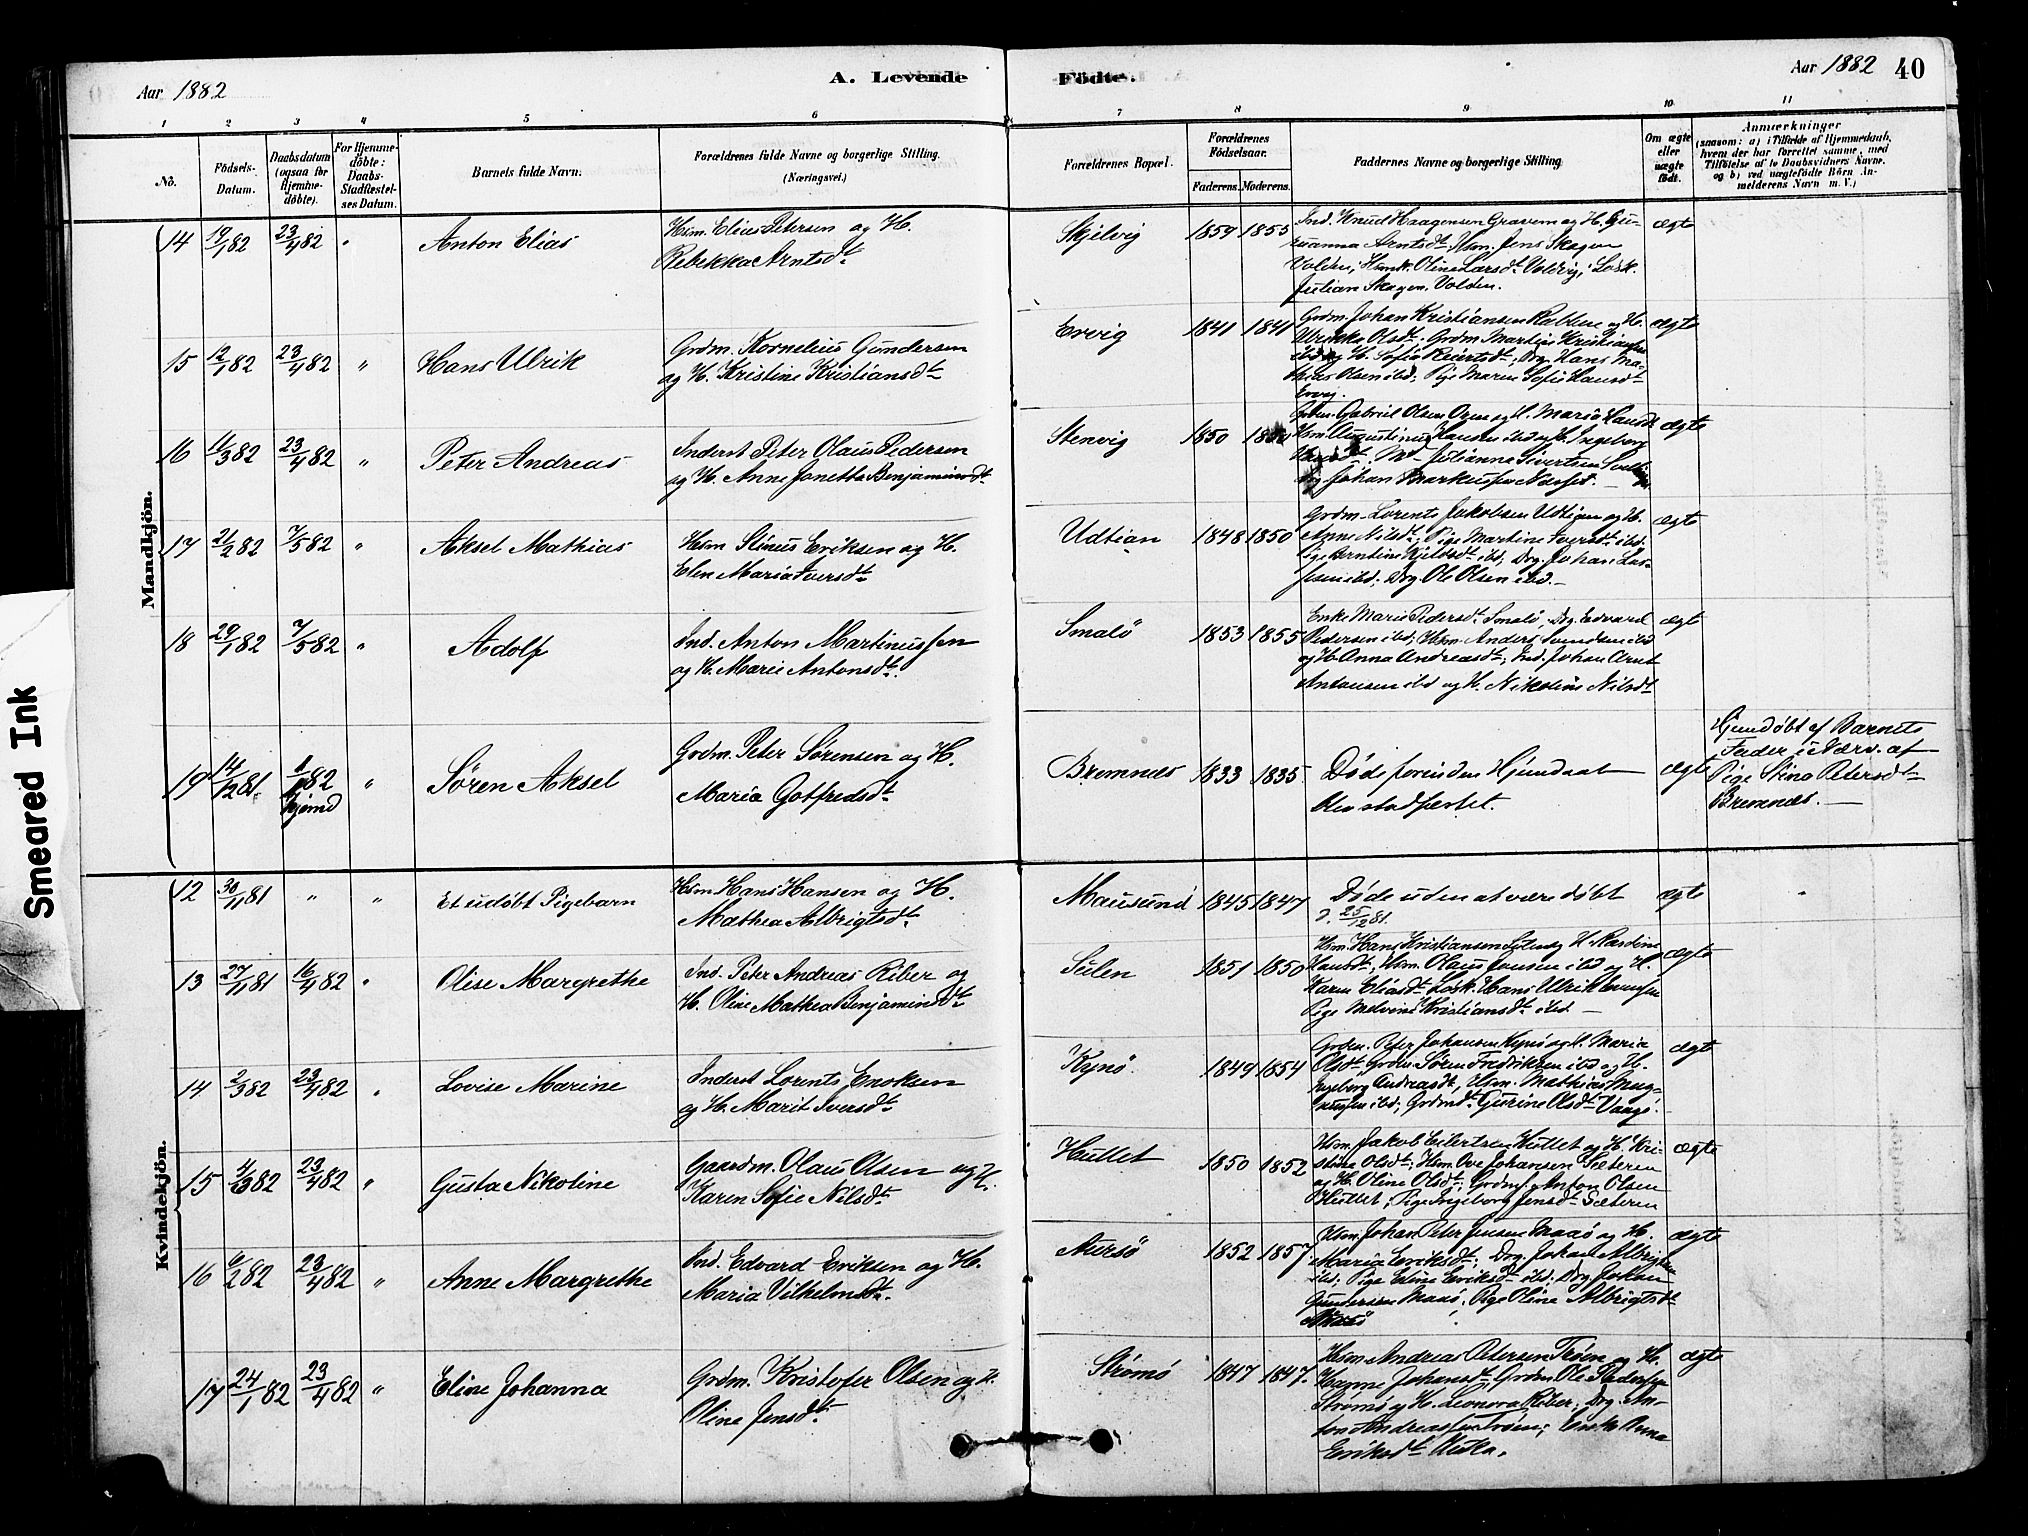 Aar 1882
A. Levende
Födte.
Aar 1882
40
1 2 3 4 5 6 7 8 9 10 11
No.
Födsels-Datum.
Daabsdatum (ogsaa for Hjemme-döbte).
For Hjemme-döbte: Daabs-Stadfæstel-ses Datum.
Barnets fulde Navn.
Forældrenes fulde Navne og borgerlige Stilling.
(Næringsvei.)
Forældrenes Bopæl.
Forældrenes Födselsaar.
Faderens. Moderens.
Faddernes Navne og borgerlige Stilling.
Om ægte eller uægte födt.
Anmærkninger
(saasom: a) i Tilfælde af Hjemmedaab, hvem der har forrettet samme, med Tilföielse af to Daabsvidners Navne, og b) ved uægtefödte Börn An-melderens Navn m. V.)
Mandkjön.
14 19/1 82 23/4 82 " Anton Elias
Hsm. Elias Petersen og H.
Rebekka Arntsdt.
Skjelvig 1859 1855
Ind. Knud Haagensen Gravem og H. Gju-
rianna Arntsdt. Hsm. Jens Skagen
Volden; Hsmk. Oline Larsdt. Valvig; Losk.
Julian Skagen, Volden.
ægte
15 12/1 82 23/4 82 " Hans Ulrik
Grdm. Kornelius Gundersen
og H. Kristine Kristiansdt.
Ervig 1841 1841
Grdm. Johan Kristiansen og H.
Ulrikke Olsdt. Grdm Martin Kristiansen
ibd og H. Sofie; Drg. Hans Ma-
thias Olsen ibd; Pige Maren Sofie Hansdt
Ervig.
ægte
16 11/3 82 23/4 82 " Peter Andreas
Inderst Peter Olaus Pedersen
og H. Anne Jonetta Benjaminsdt.
Stenvig 1850
Gabriel Olsen og H. Maria Hansdt
Hsm. Augustinus Hansen ibd og H. Ingeborg
Julianne Sivertsen
Drg. Johan Markussen
ægte
17 21/2 82 7/5 82 " Aksel Mathias
Hsm Stinus Eriksen og H.
Elen Maria Iversdt.
Udtian 1848 1850
Grdm. Lorents Jakobsen Udtian og H.
Anne Nilsdt; Pige Martine Iversdt. ibd.
Pige Berntine ibd; Drg. Johan Las-
sen ibd; Drg Ole Olsen ibd.
ægte
18 29/1 82 7/5 82 " Adolf
Ind. Anton Martinussen
og H. Marie Antonsdt.
Smalö 1853 1855
Enke Maris Pedersdt. Smalö, Drg Edvard
Pedersen ibd; Hsm. Anders Svendsen ibd
og H. Anna Andreasdt; Ind. Johan Arnt
Antonsen ibd og H. Nikoline Nilsdt
ægte
19 14/12 81 1/1 82 hjemd " Sören Aksel
Grdm. Peter Sörensen og H.
Maria Gotfredsdt.
Bremnæs 1833 1835
Döde forinden Hjemdaab
blev stadfæstet.
ægte
Hjemdöbt af Barnets
Fader i Nærv. af
Pige Stina Petersdt
Bremnæs.
Kvindekjön.
12 30/11 81 " " Et udöbt Pigebarn
Hsm. Hans Hansen og H.
Mathea Albrigtsdt.
Mausund 1845 1847
Döde uden at være döbt
d. 25/12 81.
ægte
13 27/11 81 16/4 82 " Olise Margrethe
Ind. Peter Andreas Riber og
H. Oline Mathea Benjaminsdt.
Sulen 1851 1850
Hsm. Hans Kristiansen Sulen og H.
Hansdt, Hsm. Olaus Jensen ibd og H.
Karen Eliasdt. Losk. Hans Ulrik
Pige Melvine Kristiansdt. ibd
ægte
14 2/3 82 23/4 82 " Lovise Marine
Inderst Lorents Enoksen
og H. Marit Iversdt.
Kynö. 1849 1854
Grdm. Peter Johansen Kynö og H. Maria
Olsdt, Grdm. Sören Fredriksen ibd og H.
Ingeborg Andreasdt, Hsm. Mathias Mag-
nussen ibd; Grdmdt. Gurine Olsdt. Vaagö.
ægte
15 4/3 82 23/4 82 " Gusta Nikoline
Gaardm. Olaus Olsen og H.
Karen Sofie Nilsdt.
Huttet 1850 1852
Hsm. Jakob Eilertsen Huttet og H. Kri-
stine Olsdt; Hsm. Ove Johansen Sæteren
og H. Oline Olsdt; Anton Olsen
Huttet; Pige Ingeborg Jensdt Sæteren
ægte
16 6/2 82 23/4 82 " Anne Margrethe
Ind. Edvard Eriksen og H.
Maria Vilhelmsdt.
Aursö 1852 1857
Hsm. Johan Peter Jensen Maasö og H.
Maria Eriksdt; Drg. Johan Albrigtsen
ibd; Pige Eline Eriksdt ibd; Drg Johan
Gundersen Maasö, Pige Oline Albrigtsdt
ægte
17 24/1 82 23/4 82 " Eline Johanna
Grdm. Kristofer Olsen og H.
Oline Jensdt.
Strömö 1847 1847.
Hsm Andreas Petersen Tröen og H.
Hanne Johansdt; Grdm. Ole Pedersen
Strömö og H. Leonora Riber; Drg. An-
ton Andreassen Tröen; Enke Anna
Eriksdt
ægte
Smeared Ink